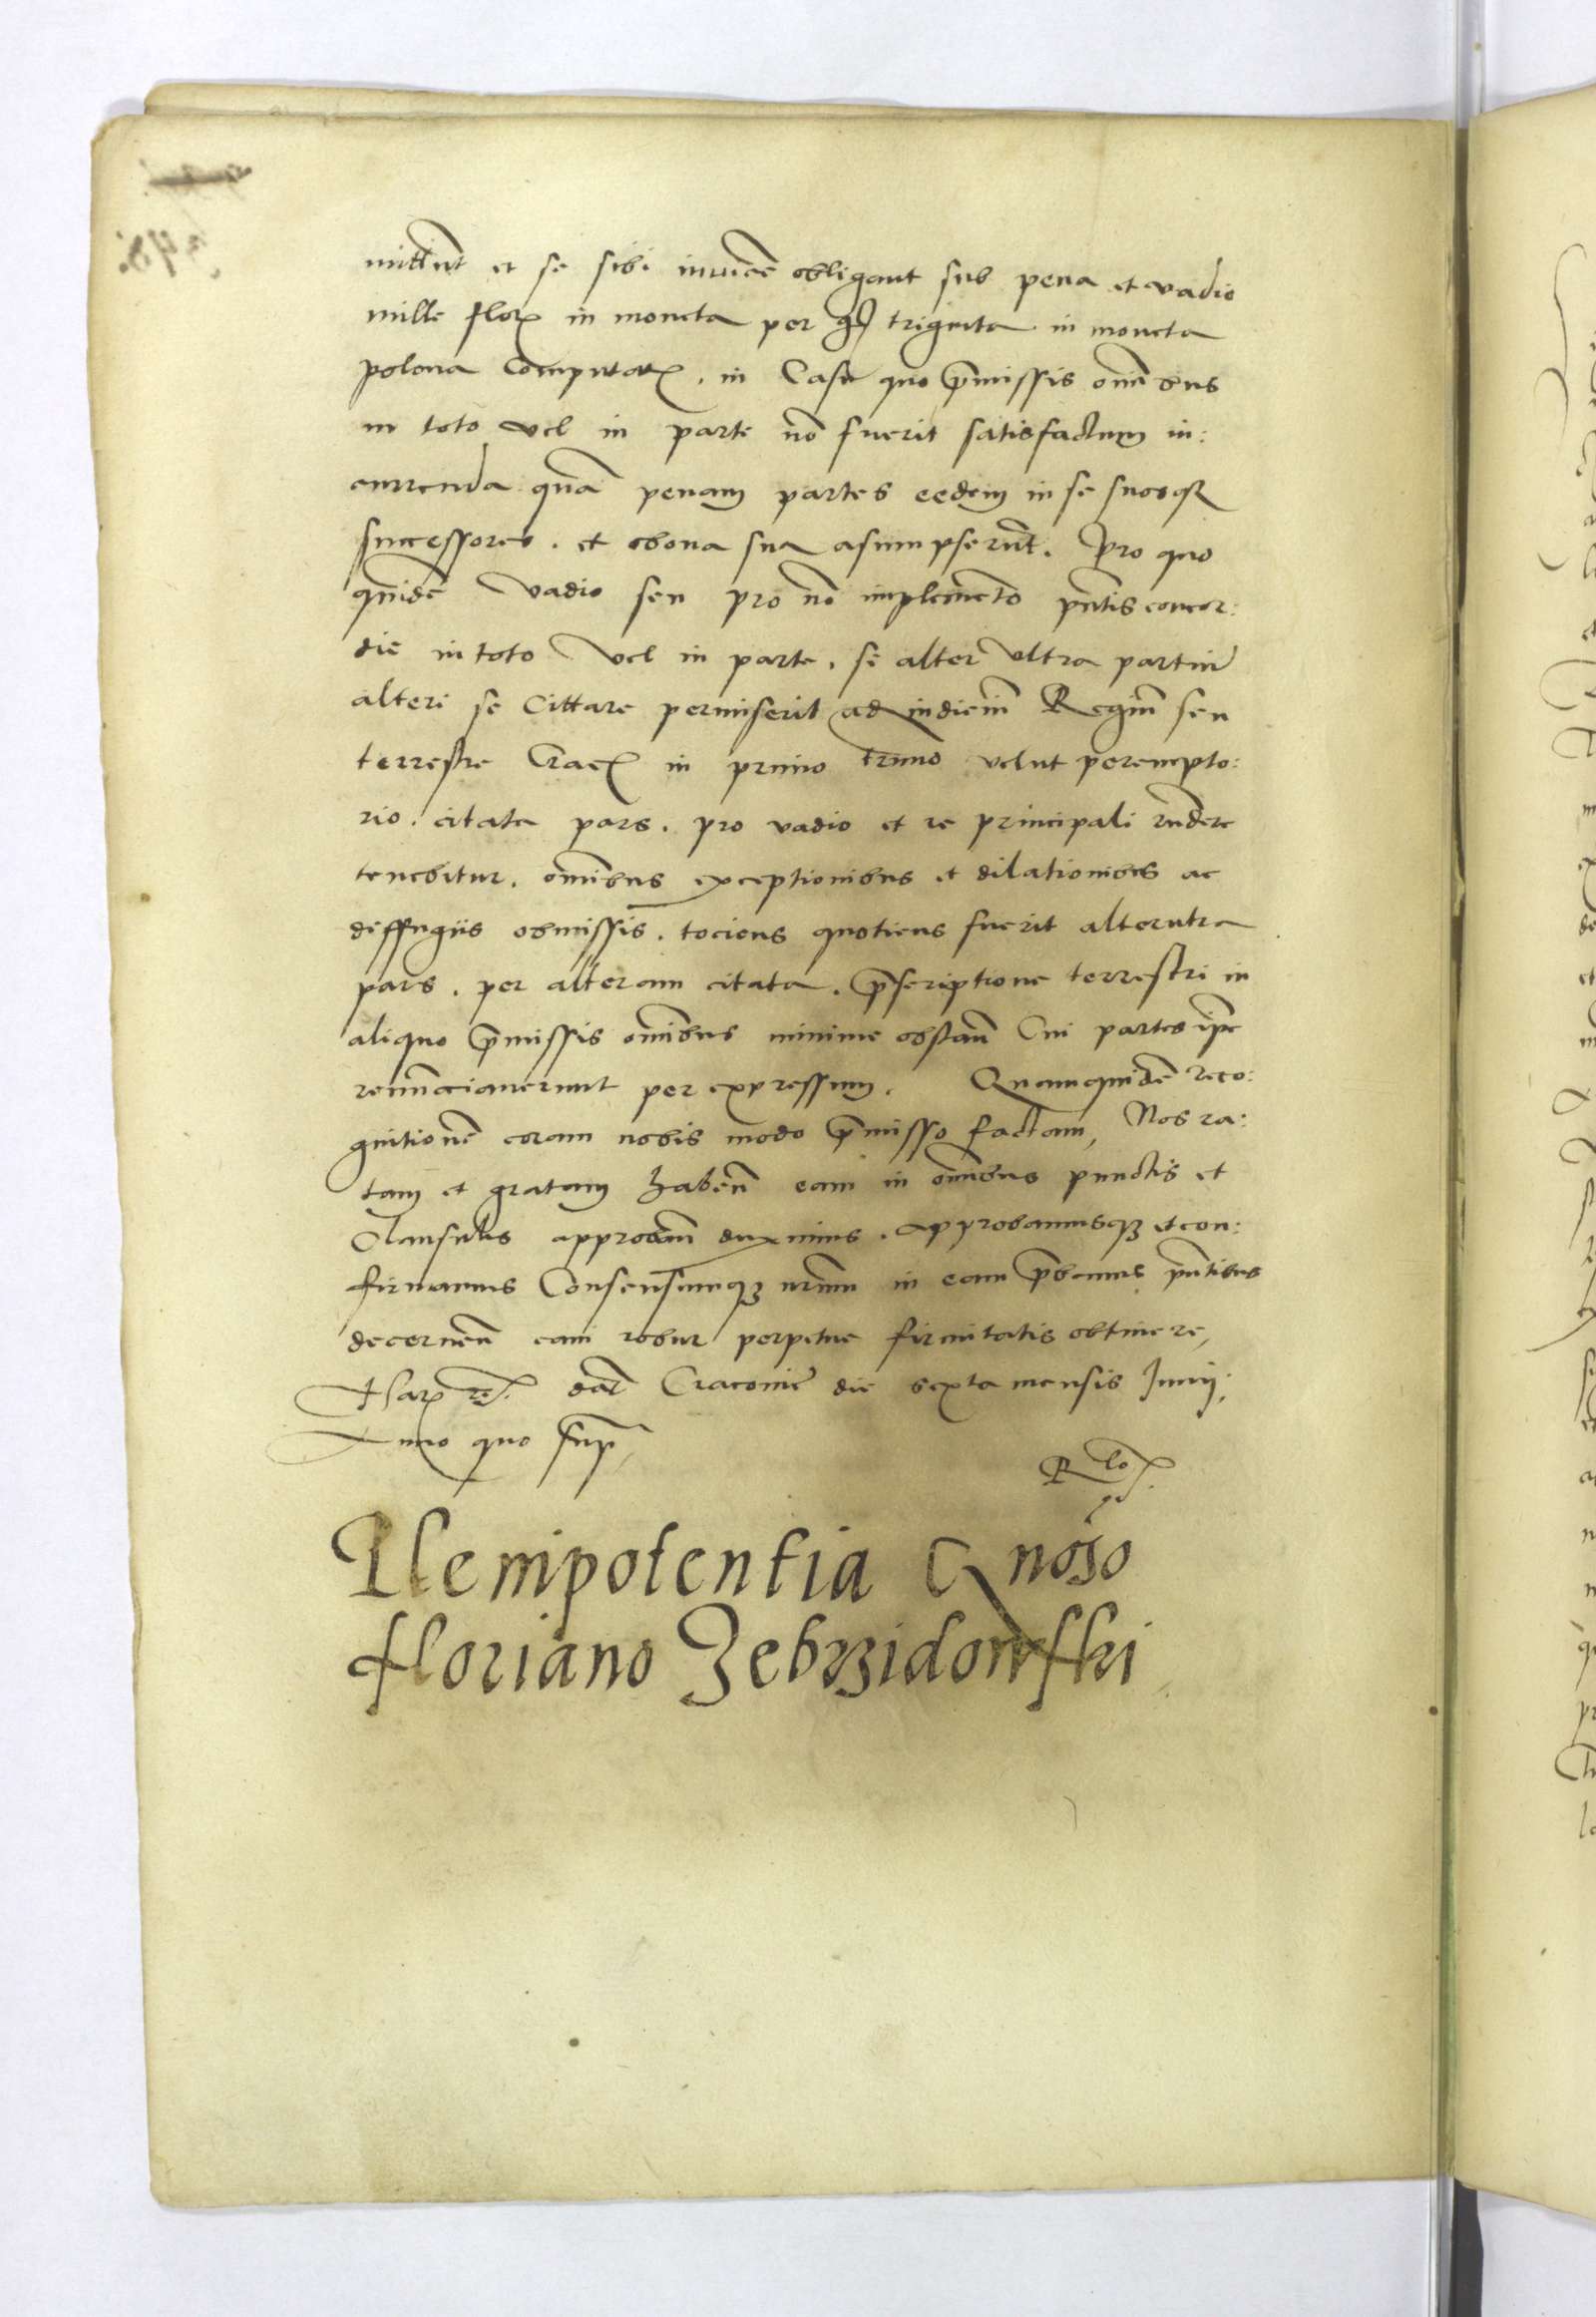 mittunt et se sibi inuicẽ obligant sub pena et vadio
mille flor in moneta per gs triginta in moneta
polona computatꝭ. in Casu quo p̃missis oмnibus
in toto vel in parte nõ fuerit satisfactum in:
currenda quã penam partes eedem in se suosqꝫ
successores. et bona sua asumpserũt. Pro quo
quidẽ vadio seu pro nõ implemẽto pñtis concor:
die in toto vel in parte. se alter vltra partiũ
alteri se Cittare permiserit ad iudiciũ Regiũ seu
terrestre Cracꝭ in primo trmo velut perempto:
rio. citata pars. pro vadio et re principali rñdere
tenebitur. oĩnibus exceptionibus et dilationibus ac
deffugiis obmissis. tociens quotiens fuerit alterutra
pars. per alteram citata. p̃scriptione terrestri in
aliquo p̃missis oĩnibus minime obstañ Cui partes ip̃e
renunciauerunt per expressum. Quamquidẽ reco:
gnitionẽ coram nobis modo p̃misso factam, Nos ra:
tam et gratam habeñ eam in oĩnibus punctis et
Clausulis approbañ duximus. approbamusqꝫ et con:
firmamus Consensumqꝫ nrum in eam p̃bemus pñtibus
decerneñ eam robur perpetue firmitatis obtinere,
Harꝭ re. dat Cracouie die sexta mensis Junij.
Anno quo sup
Rlo
Plenipotentia Gnoso
Floriano Zebrzidowski